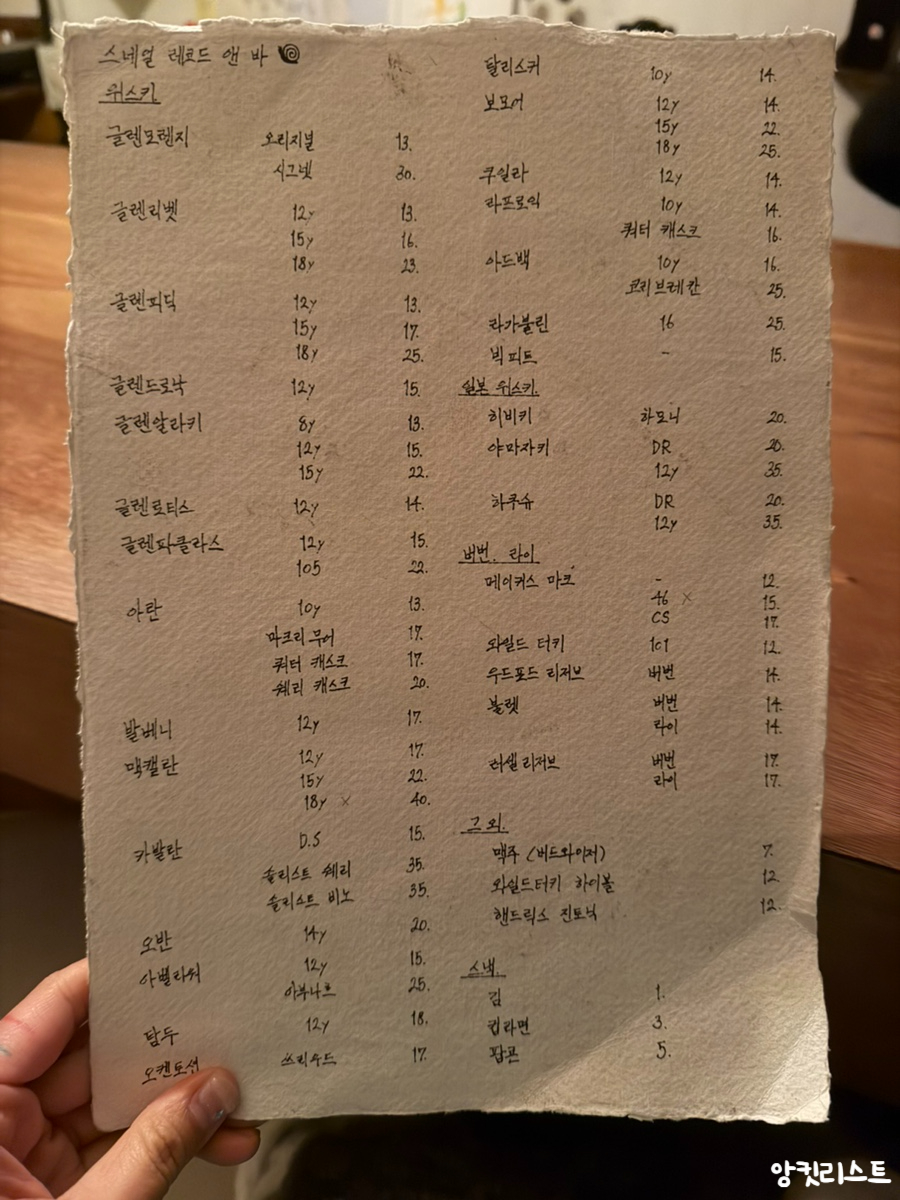 스네일 레코드 앤 바
위스키
글렌모렌지 오리지널 13.
시그넷 30.
글렌리벳 12y 13.
15y 16.
18y 23.
글렌피딕 12y 13.
15y 17.
18y 25.
글렌드로낙 12y 15.
글렌알라키 8y 13.
12y 15.
15y 22.
글렌로티스 12y 14.
글렌파클라스 12y 15.
105 22.
아란 10y 13.
마크리무어 17.
쿼터 캐스크 17.
쉐리 캐스크 20.
발베니 12y 17.
맥캘란 12y 17.
15y 22.
18y × 40.
카발란 D.S 15.
솔리스트 쉐리 35.
솔리스트 비노 35.
오반 14y 20.
아벨라워 12y 15.
아부나흐 25.
탐두 12y 18.
오켄토션 쓰리우드 17.
탈리스커 10y 14.
보모어 12y 14.
15y 22.
18y 25.
쿠일라 12y 14.
라프로익 10y 14.
쿼터 캐스크 16.
아드백 10y 16.
코리브레칸 25.
라가불린 16 25.
빅피트 - 15.
일본 위스키.
히비키 하모니 20.
야마자키 DR 20.
12y 35.
하쿠슈 DR 20.
12y 35.
버번. 라이
메이커스 마크 - 12.
46 × 15.
CS 17.
와일드 터키 101 12.
우드포드 리저브 버번 14.
불렛 버번 14.
라이 14.
러셀 리저브 버번 17.
라이 17.
그 외.
맥주 (버드와이저) 7.
와일드터키 하이볼 12.
핸드릭스 진토닉 12.
스낵.
김 1.
컵라면 3.
팝콘 5.
앙킷리스트